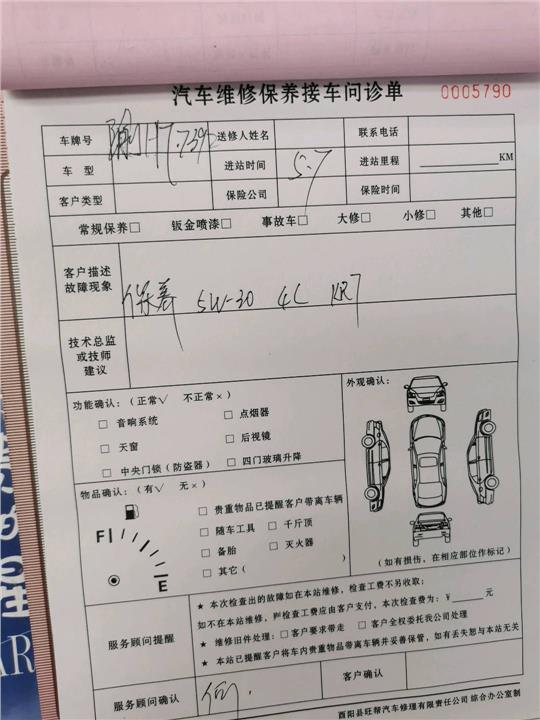 汽车维修保养接车问诊单 0005790
车牌号 送修人姓名 联系电话
车 型 进站时间 5.7 进站里程 KM
客户类型 保险公司 保险时间
常规保养□ 钣金喷漆□ 事故车□ 大修□ 小修□ 其他□
客户描述
故障现象
保养 5W-30 4L
技术总监
或技师
建议
功能确认：（正常√ 不正常×）
□ 音响系统 □ 点烟器
□ 天窗 □ 后视镜
□ 中央门锁（防盗器） □ 四门玻璃升降
外观确认：
（如有损伤，在相应部位作标记）
物品确认：（有√ 无×）
F
E
□ 贵重物品已提醒客户带离车辆
□ 随车工具 □ 千斤顶
□ 备胎 □ 灭火器
□ 其它（ ）
服务顾问提醒
★ 本次检查出的故障如在本站维修，检查工费不另收取；
如不在本站维修，则检查工费应由客户支付，本次检查费为：¥ 元
★ 维修旧件处理：□ 客户要求带走 □ 客户全权委托我公司处理
★ 本站已提醒客户将车内贵重物品带离车辆并妥善保管，如有丢失恕与本站无关
服务顾问确认 客户确认
酉阳县旺帮汽车修理有限责任公司 综合办公室制
AR